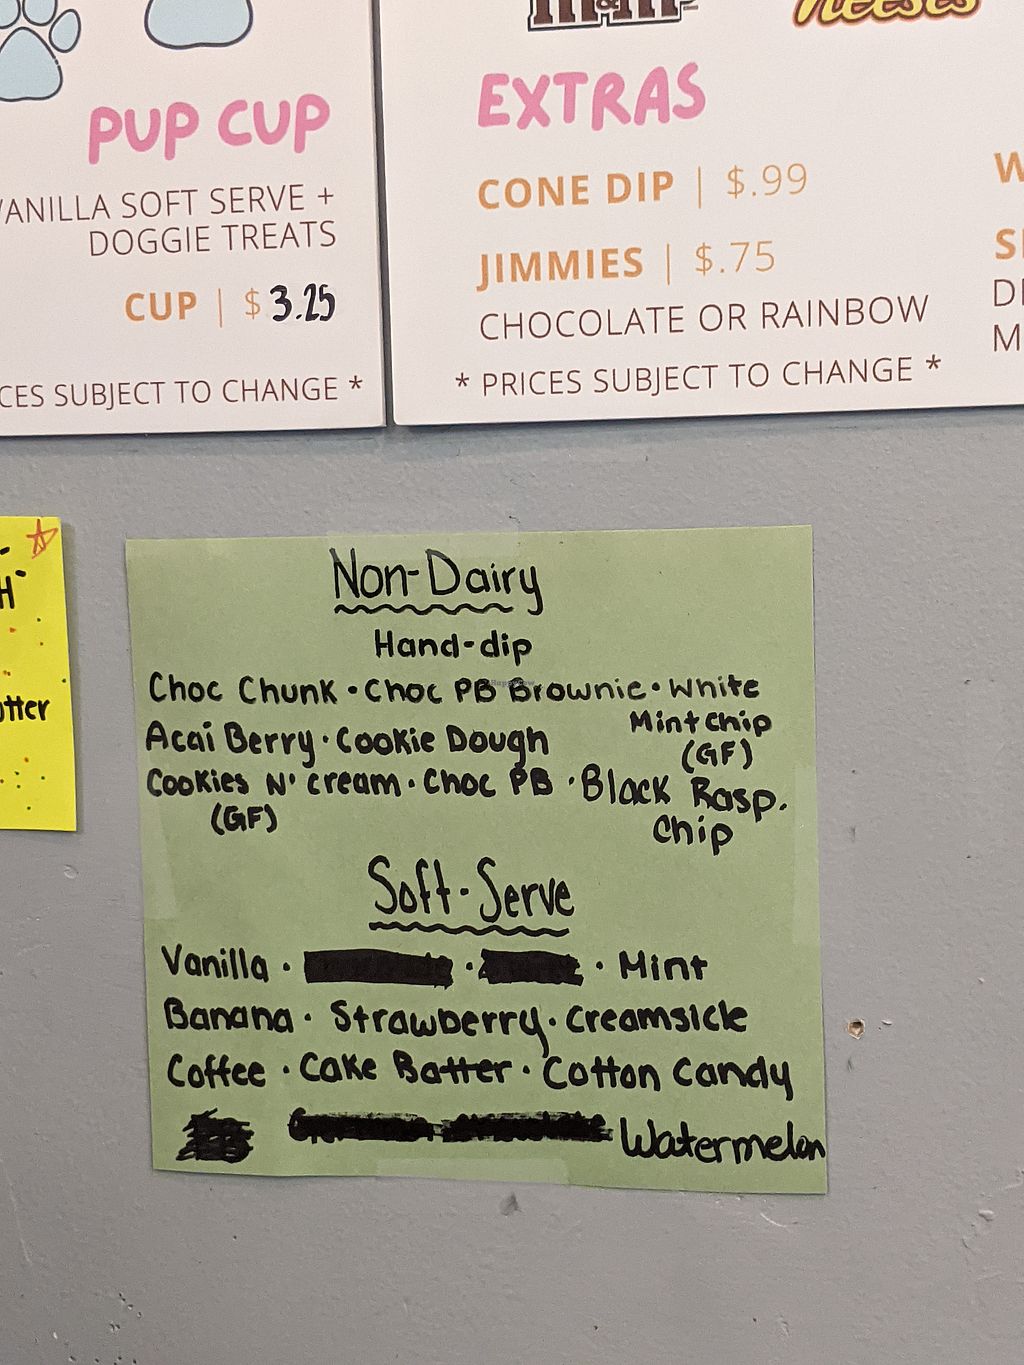 m&m's
Reese's
PUP CUP
VANILLA SOFT SERVE +
DOGGIE TREATS
CUP | $ 3.25
CES SUBJECT TO CHANGE *
EXTRAS
CONE DIP | $.99
JIMMIES | $.75
CHOCOLATE OR RAINBOW
* PRICES SUBJECT TO CHANGE *
W
S
D
M
H
tter
Non-Dairy
Hand-dip
Choc Chunk · Choc PB Brownie · White
Mint Chip
(GF)
Acai Berry · Cookie Dough
Cookies N' cream · Choc PB · Black Rasp.
(GF)
Chip
Soft-Serve
Vanilla · · · Mint
Banana · Strawberry · Creamsicle
Coffee · Cake Batter · Cotton Candy
Watermelon